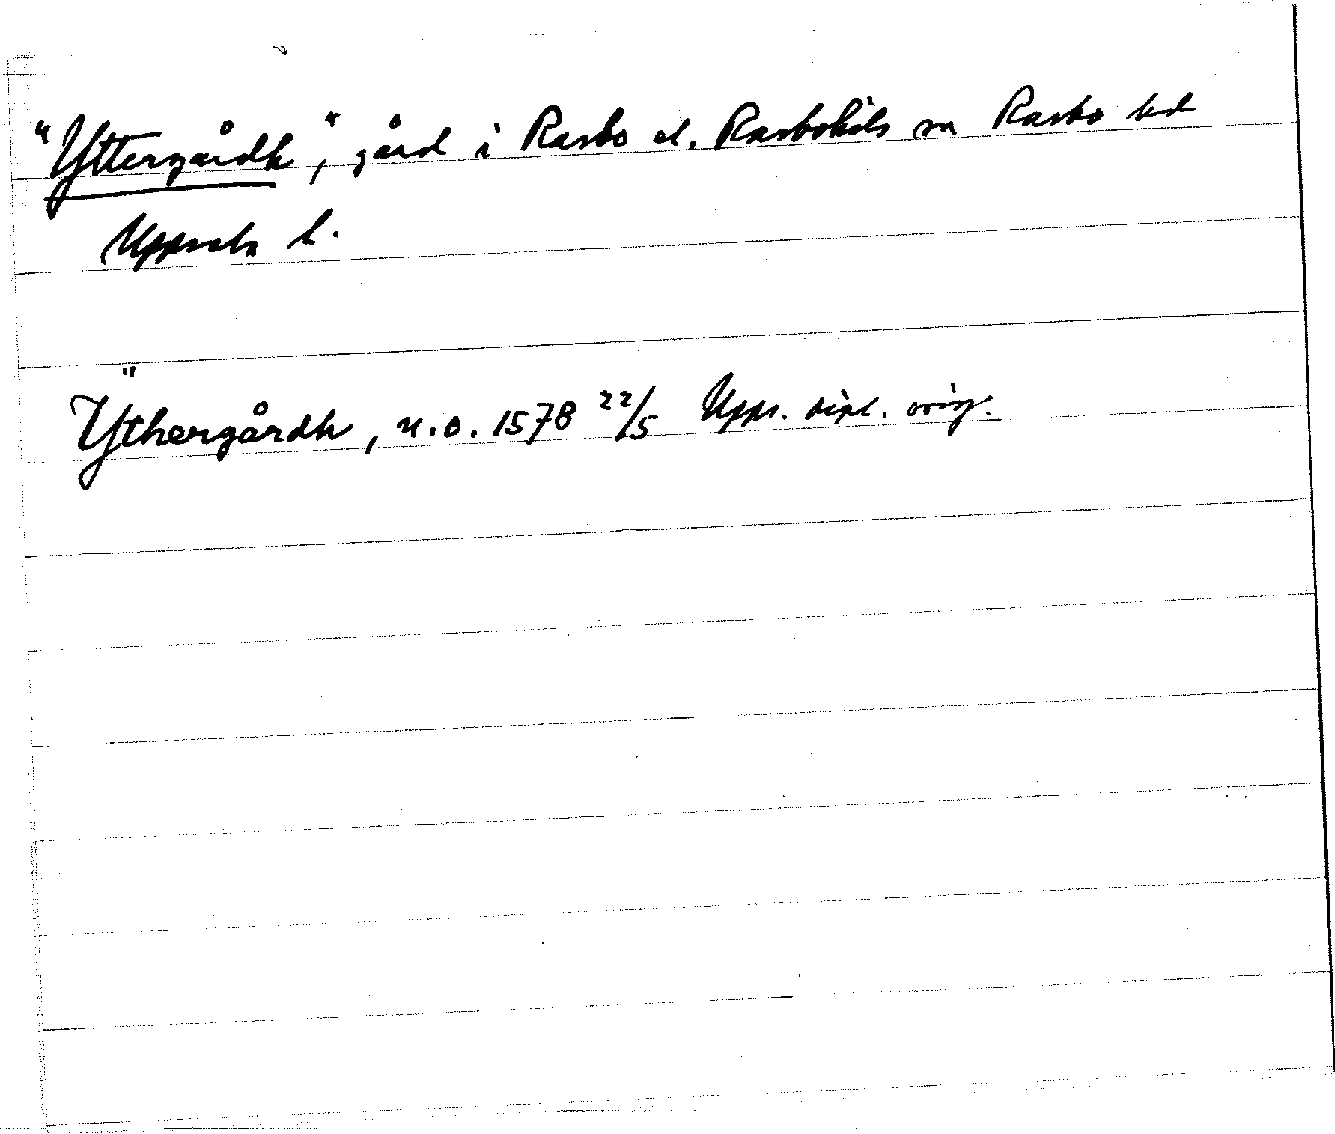 "Yttergårdh", gård i Rasbo el. Rasbokils sn Rasbo hd
Uppsala l.
Ÿthergårdh, u.o. 1578 22/5 Upps. dipl. orig.